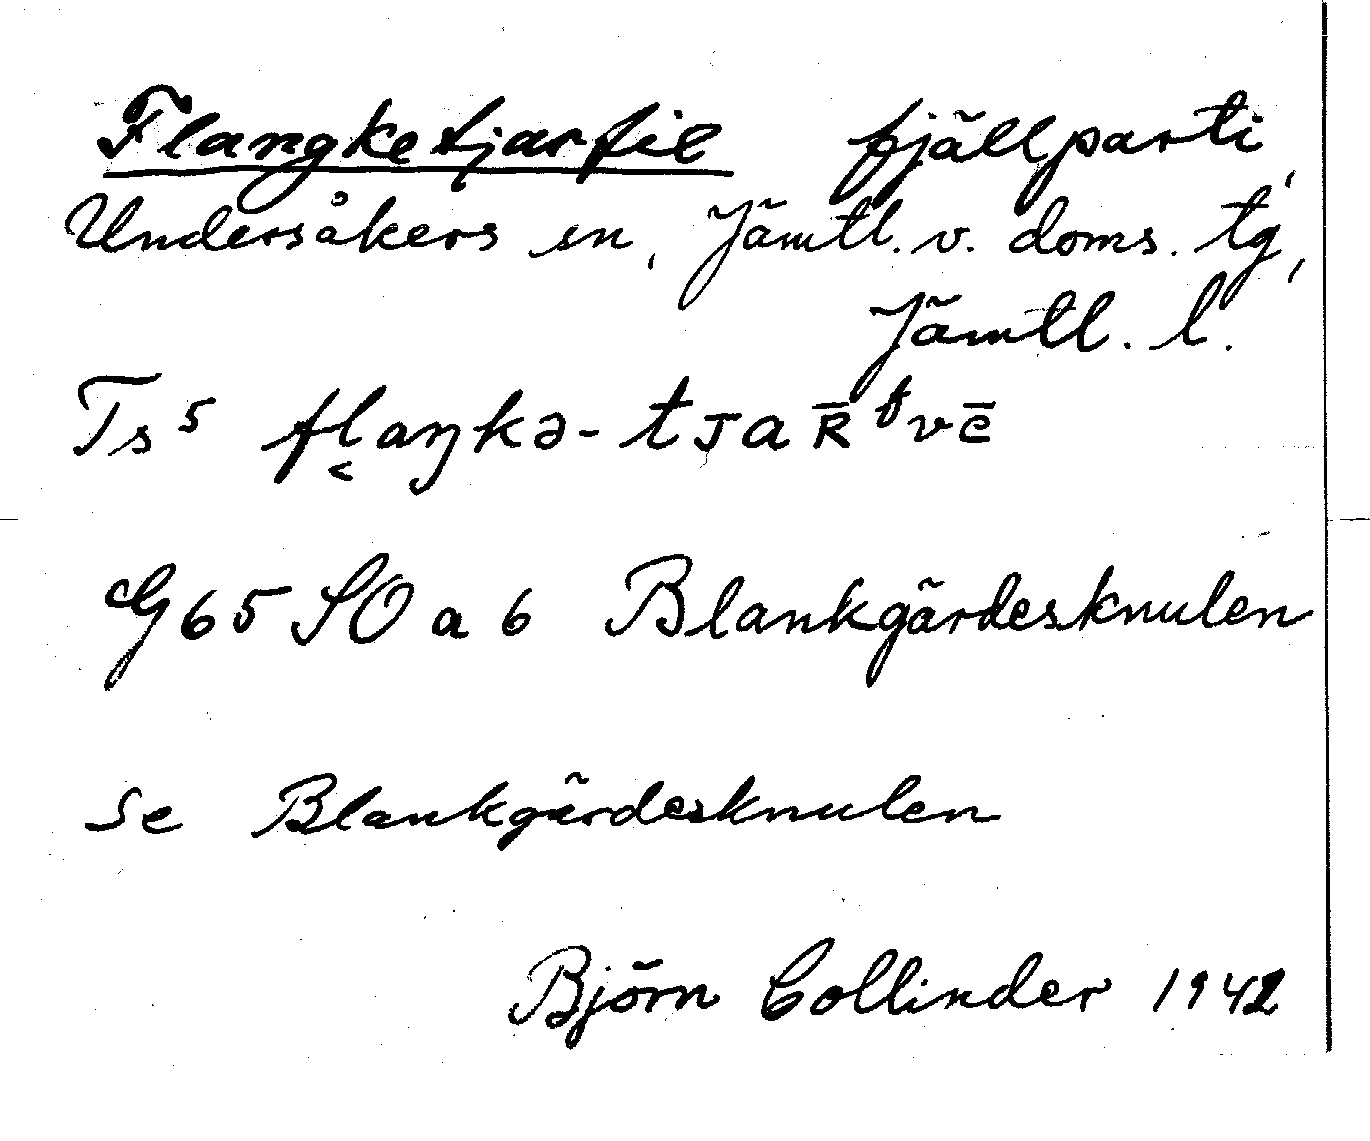 Flangketjarfie fjällparti,
Undersåkers sn, Jämtl. v. doms. tg,
Jämtl. l.
Ts⁵ fl̬aŋkə-tᴊaʀ̄ᶠvē
G65 SO a 6 Blankgärdesknulen
Se Blankgärdesknulen
Björn Collinder 1942